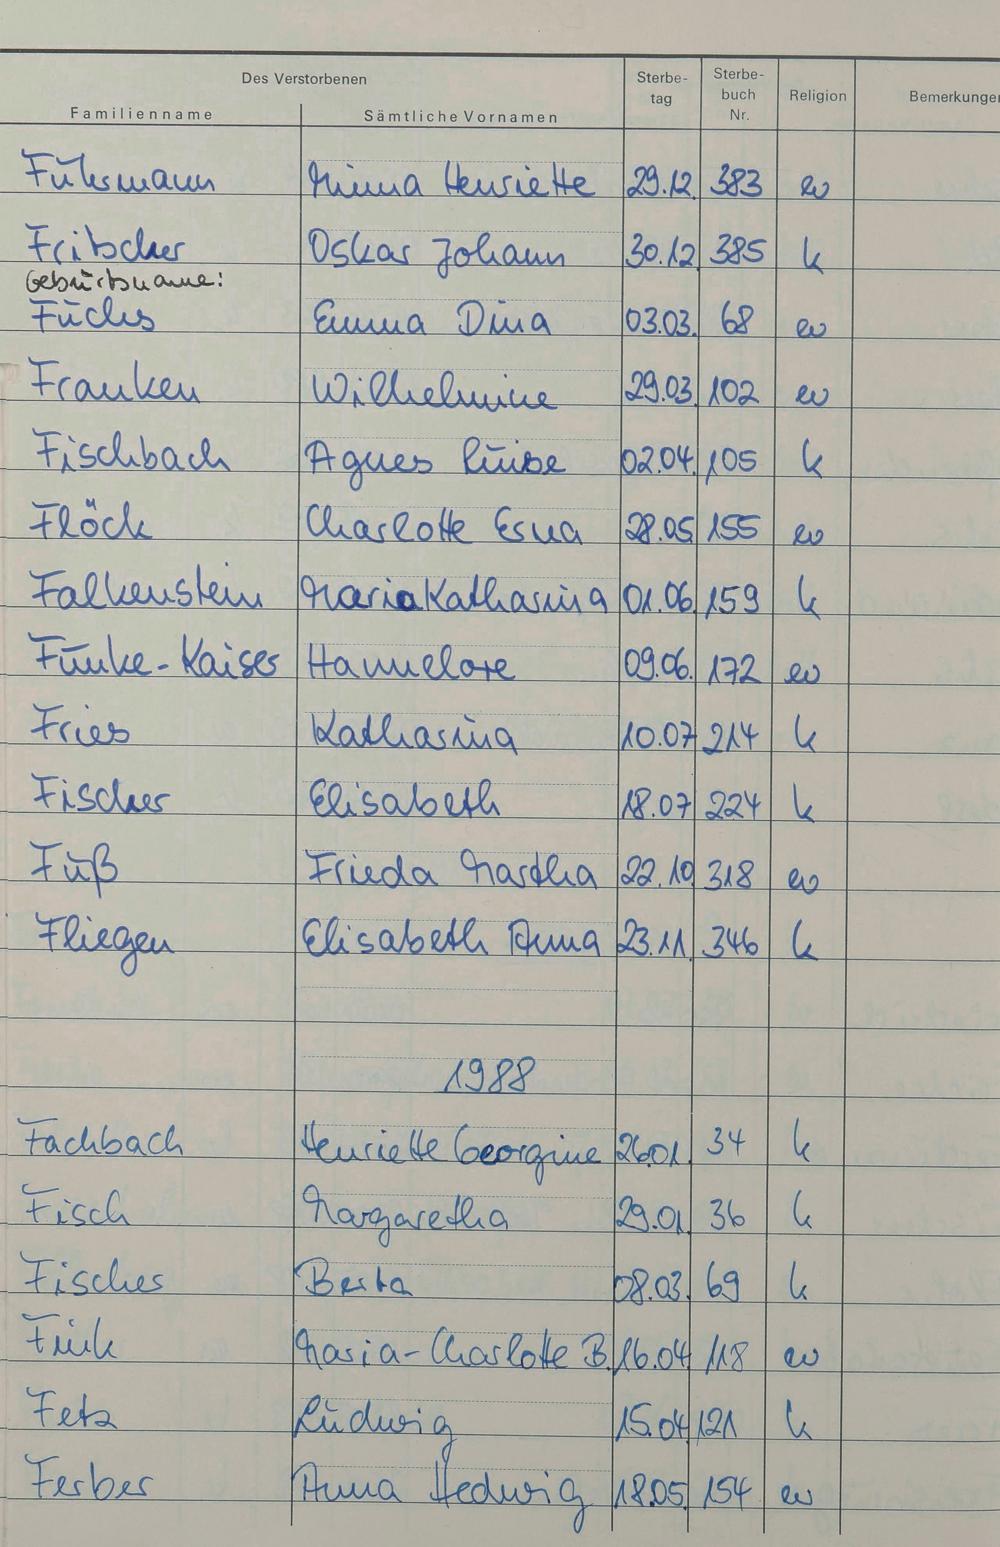 Des Verstorbenen
Familienname Sämtliche Vornamen Sterbe-tag Sterbe-buch Nr. Religion Bemerkungen
Fuhrmann Minna Henriette 29.12. 383 ev
Fritscher Oskar Johann 30.12 385 k
Geburtsname:
Fuchs Emma Dina 03.03. 68 ev
Franken Wilhelmine 29.03 102 ev
Fischbach Agnes Luise 02.04. 105 k
Flöck Charlotte Erna 28.05 155 ev
Falkenstein Maria Katharina 01.06 159 k
Funke-Kaiser Hannelore 09.06. 172 ev
Fries Katharina 10.07 214 k
Fischer Elisabeth 18.07 224 k
Fuß Frieda Martha 22.10 318 ev
Fliegen Elisabeth Anna 23.11. 346 k
1988
Fachbach Henriette Georgine 26.01. 34 k
Fisch Margaretha 29.01. 36 k
Fischer Berta 08.03. 69 k
Fink Maria-Charlotte B. 16.04 118 ev
Fetz Ludwig 15.04 121 k
Ferber Anna Hedwig 18.05 154 ev